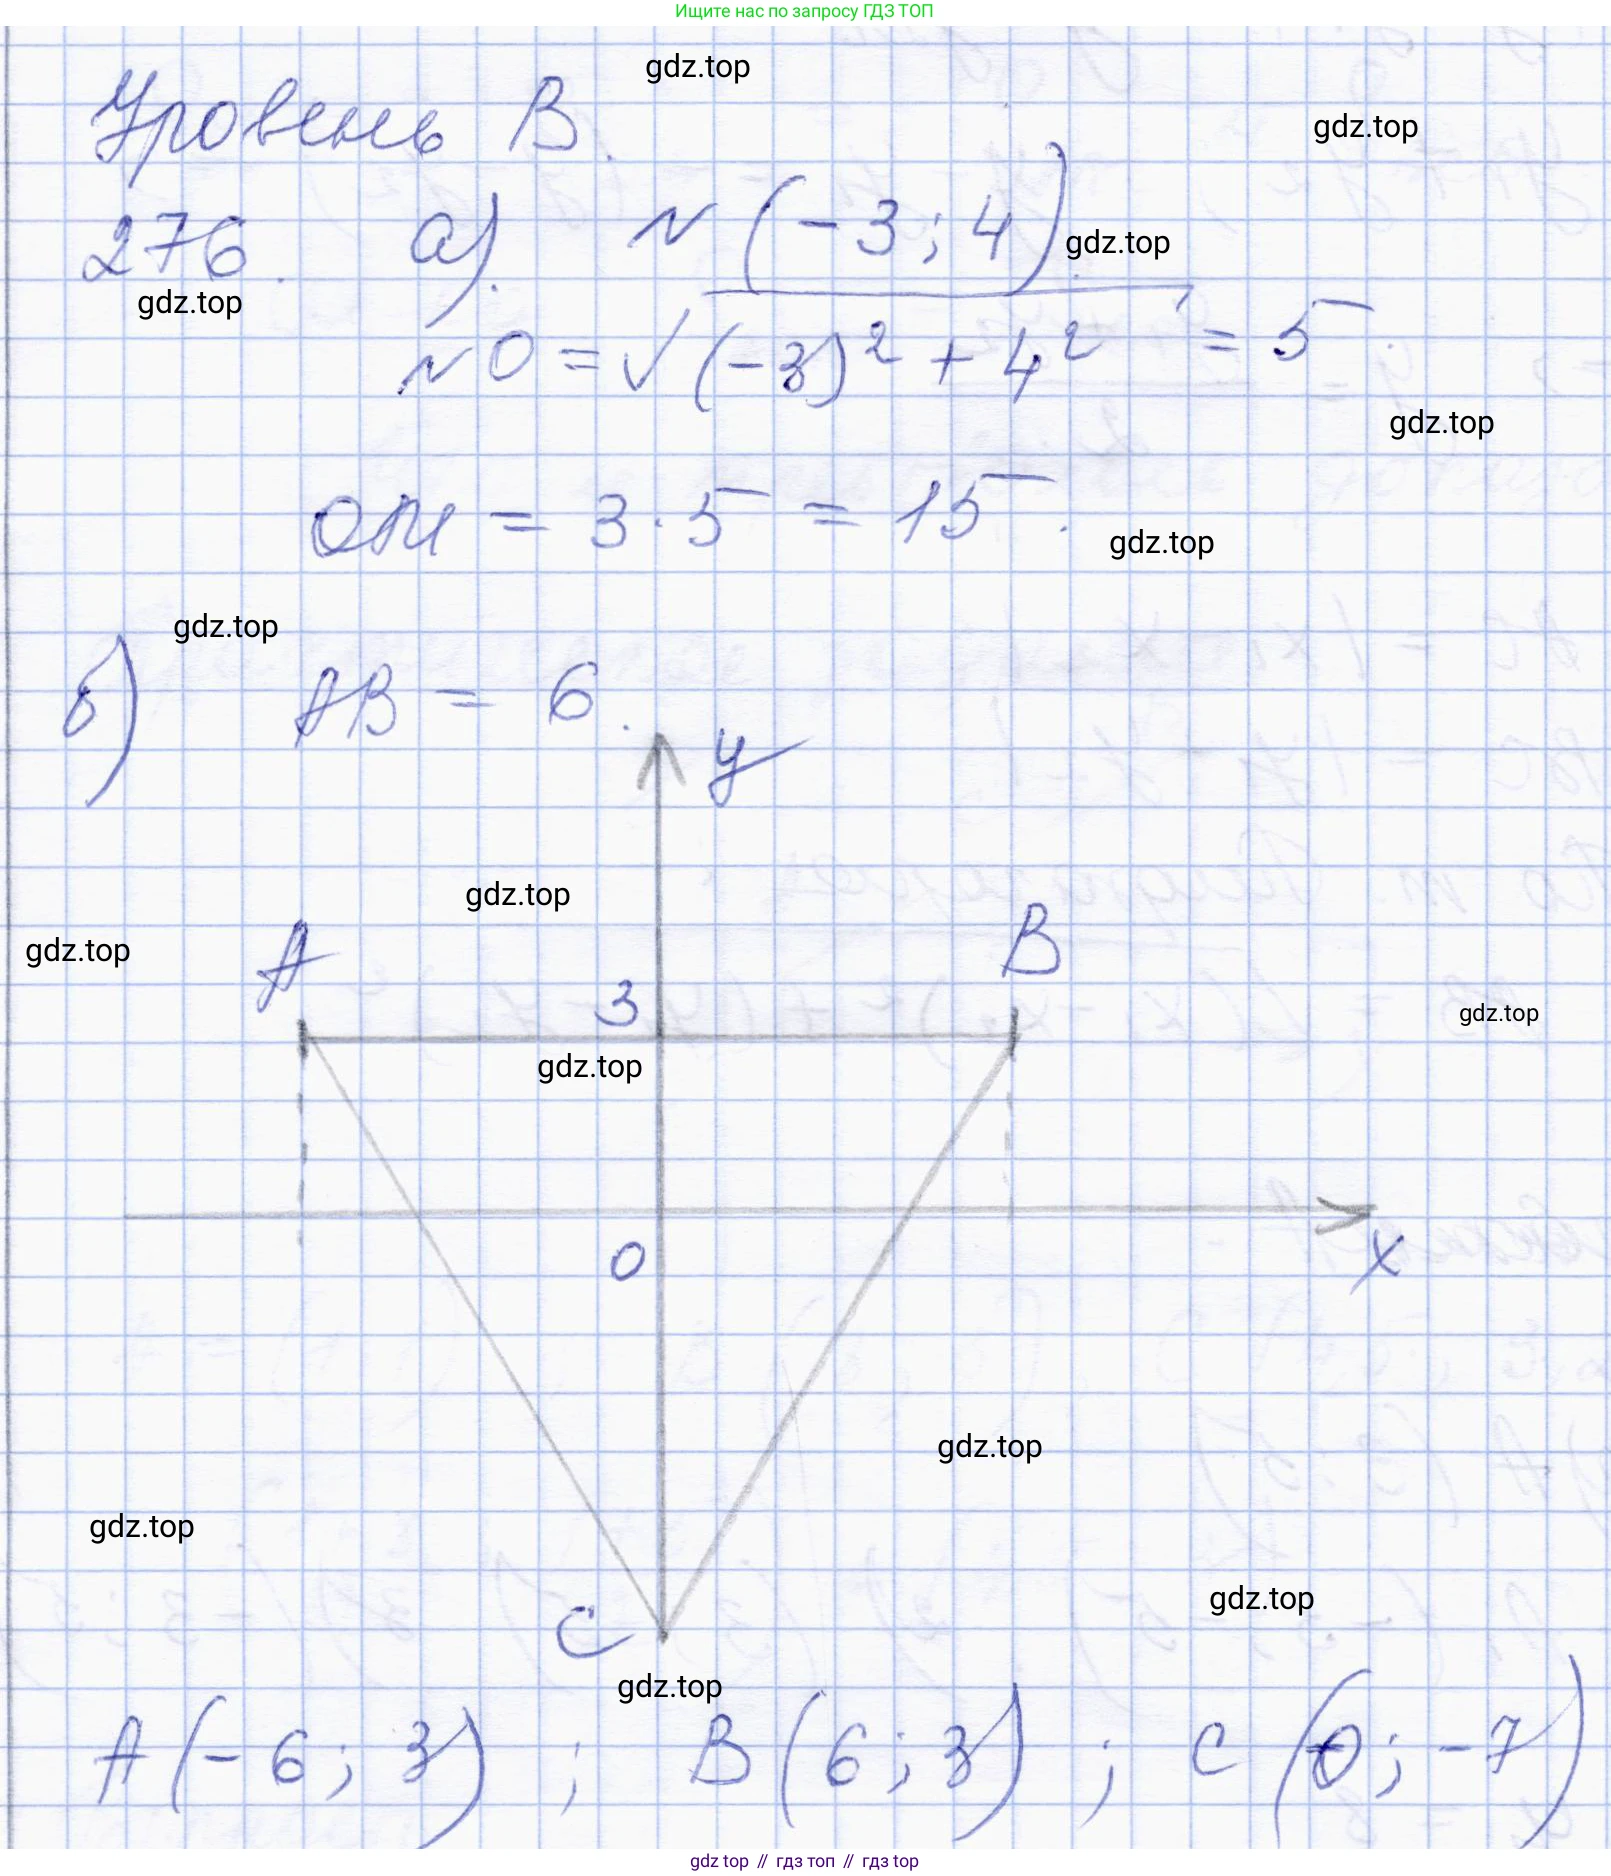 Ищите нас по запросу ГДЗ ТОП
gdz.top
Уровень В.
gdz.top
276. а). N (-3; 4).
gdz.top
gdz.top
NO = √(-3)² + 4² = 5.
gdz.top
OM = 3 · 5 = 15.
gdz.top
gdz.top
б) AB = 6.
y
gdz.top
A
B
gdz.top
3
gdz.top
gdz.top
0
x
gdz.top
gdz.top
gdz.top
C
gdz.top
A(-6; 3) ; B(6; 3) ; C(0; -7)
gdz top // гдз топ // гдз top